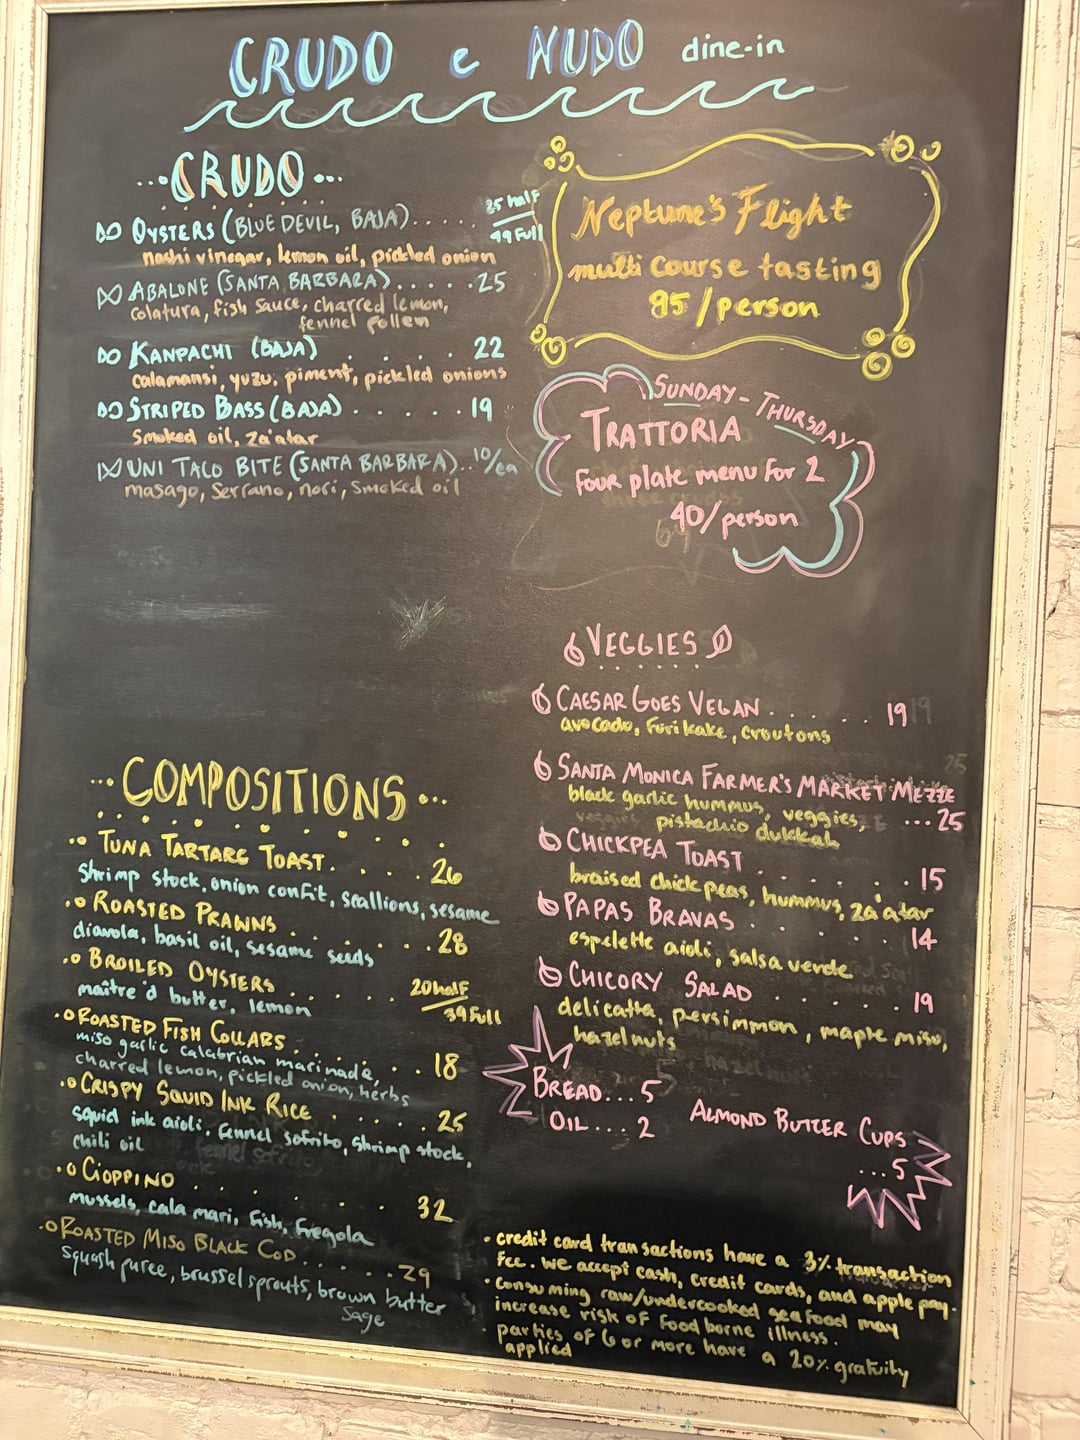 CRUDO e NUDO dine-in
...CRUDO...
OYSTERS (BLUE DEVIL, BAJA).....
25 half
49 Full
nashi vinegar, lemon oil, pickled onion
ABALONE (SANTA BARBARA).....25
colatura, fish sauce, charred lemon,
fennel pollen
KANPACHI (BAJA) ..... 22
calamansi, yuzu, piment, pickled onions
STRIPED BASS (BAJA) ..... 19
smoked oil, za'atar
UNI TACO BITE (SANTA BARBARA)..10/ea
masago, serrano, nori, smoked oil
Neptune's Flight
multi course tasting
95/person
SUNDAY - THURSDAY
TRATTORIA
Four plate menu for 2
40/person
VEGGIES
CAESAR GOES VEGAN ...... 19
avocado, furikake, croutons
SANTA MONICA FARMER'S MARKET MEZZE
black garlic hummus, veggies, ...25
pistachio dukkah
CHICKPEA TOAST ....... 15
braised chickpeas, hummus, za'atar
PAPAS BRAVAS ....... 14
espelette aioli, salsa verde
CHICORY SALAD ...... 19
delicatta, persimmon, maple miso,
hazelnuts
BREAD... 5
OIL... 2
ALMOND BUTTER CUPS
...5
...COMPOSITIONS...
TUNA TARTARE TOAST..... 26
shrimp stock, onion confit, scallions, sesame
ROASTED PRAWNS ..... 28
diavola, basil oil, sesame seeds
BROILED OYSTERS ..... 20 half
39 Full
maître'd butter, lemon
ROASTED FISH COLLARS ..... 18
miso garlic calabrian marinade,
charred lemon, pickled onion, herbs
CRISPY SQUID INK RICE ..... 25
squid ink aioli, fennel sofrito, shrimp stock,
chili oil
CIOPPINO ...... 32
mussels, cala mari, fish, fregola
ROASTED MISO BLACK COD......29
squash puree, brussel sprouts, brown butter
sage
• credit card transactions have a 3% transaction
fee. we accept cash, credit cards, and apple pay.
• consuming raw/undercooked seafood may
increase risk of food borne illness.
• parties of 6 or more have a 20% gratuity
applied